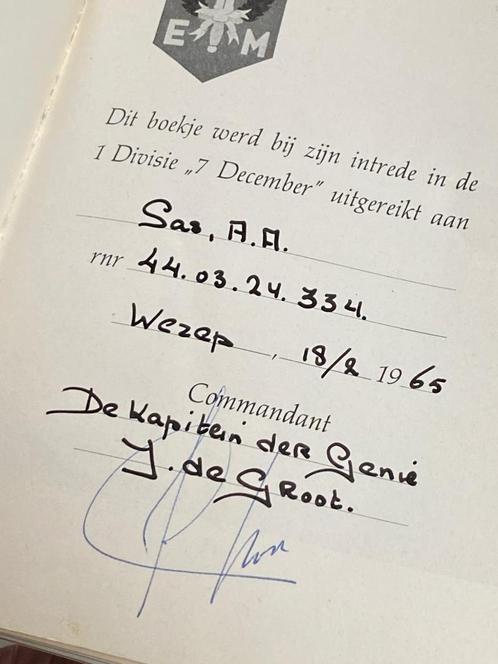 E M
Dit boekje werd bij zijn intrede in de
1 Divisie „7 December” uitgereikt aan
Sas, A.A.
rnr 44.03.24.334.
Wezep, 18/2 1965
Commandant
De Kapitein der Genie
J. de Groot.